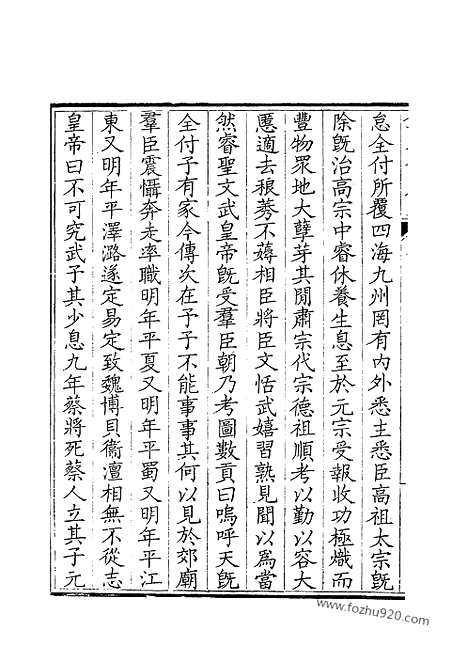 怠全付所覆四海九州罔有内外悉主悉臣高祖太宗旣
除旣治高宗中睿休養生息至於元宗受報收功極熾而
豐物眾地大孽芽其間肅宗代宗德祖順考以勤以容大
慝適去稂莠不薅相臣將臣文恬武嬉習熟見聞以爲當
然睿聖文武皇帝旣受羣臣朝乃考圖數貢曰嗚呼天旣
全付予有家今傳次在予予不能事事其何以見於郊廟
羣臣震懾奔走率職明年平夏又明年平蜀又明年平江
東又明年平澤潞遂定易定致魏博貝衞澶相無不從志
皇帝曰不可究武予其少息九年蔡將死蔡人立其子元
www.fozhu920.com